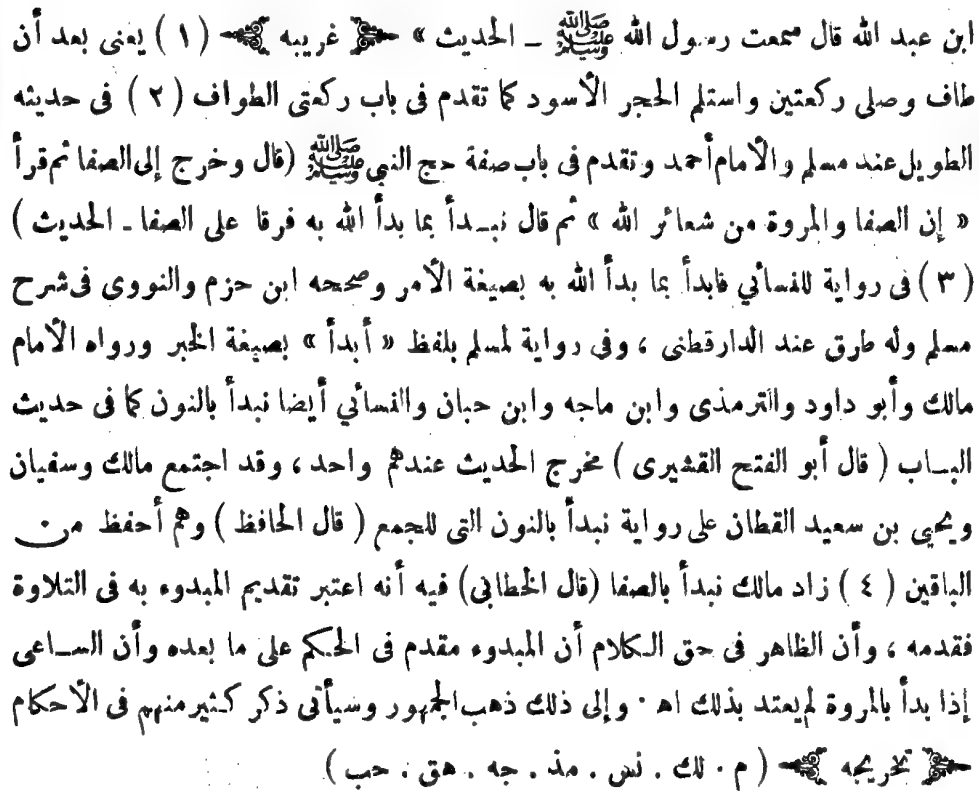 ابن عبد الله قال سمعت رسول الله ﷺ ــ الحديث » ﴿ غريبه ﴾ ( ١ ) يعنى بعد أن
طاف وصلى ركعتين واستلم الحجر الأسود كما تقدم فى باب ركعتى الطواف ( ٢ ) فى حديثه
الطويل عند مسلم والأمام أحمد وتقدم فى باب صفة حج النبي ﷺ (قال وخرج إلى الصفا ثم قرأ
« إن الصفا والمروة من شعائر الله » ثم قال نبــدأ بما بدأ الله به فرقا على الصفا ـ الحديث )
( ٣ ) فى رواية للنسائي فابدأ بما بدأ الله به بصيغة الأمر وصححه ابن حزم والنووى فى شرح
مسلم وله طرق عند الدارقطنى ، وفى رواية لمسلم بلفظ « أبدأ » بصيغة الخبر ورواه الأمام
مالك وأبو داود والترمذى وابن ماجه وابن حبان والنسائي أيضا نبدأ بالنون كما فى حديث
البــاب ( قال أبو الفتح القشيرى ) مخرج الحديث عندهم واحد ، وقد اجتمع مالك وسفيان
ويحيى بن سعيد القطان على رواية نبدأ بالنون التى للجمع ( قال الحافظ ) وهم أحفظ من
الباقين ( ٤ ) زاد مالك نبدأ بالصفا (قال الخطابى) فيه أنه اعتبر تقديم المبدوء به فى التلاوة
فقدمه ، وأن الظاهر فى حق الـكلام أن المبدوء مقدم فى الحـكم على ما بعده وأن الســاعى
إذا بدأ بالمروة لم يعتد بذلك اهـ ٠ وإلى ذلك ذهب الجمهور وسيأتى ذكر كـثير منهم فى الأحكام
﴿ تخريجه ﴾ ( م . لك . نس . مذ . جه . هق . حب )